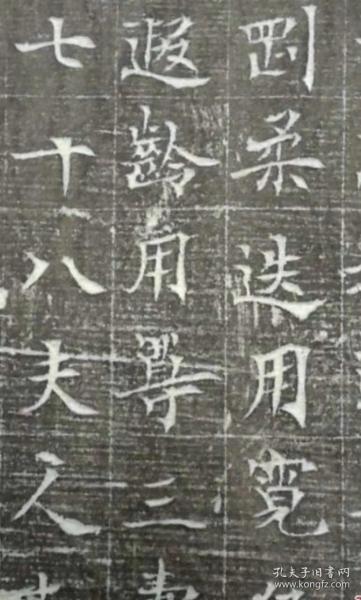 剛柔迭用寬
遐齡用等三
七十八夫人
孔夫子旧书网